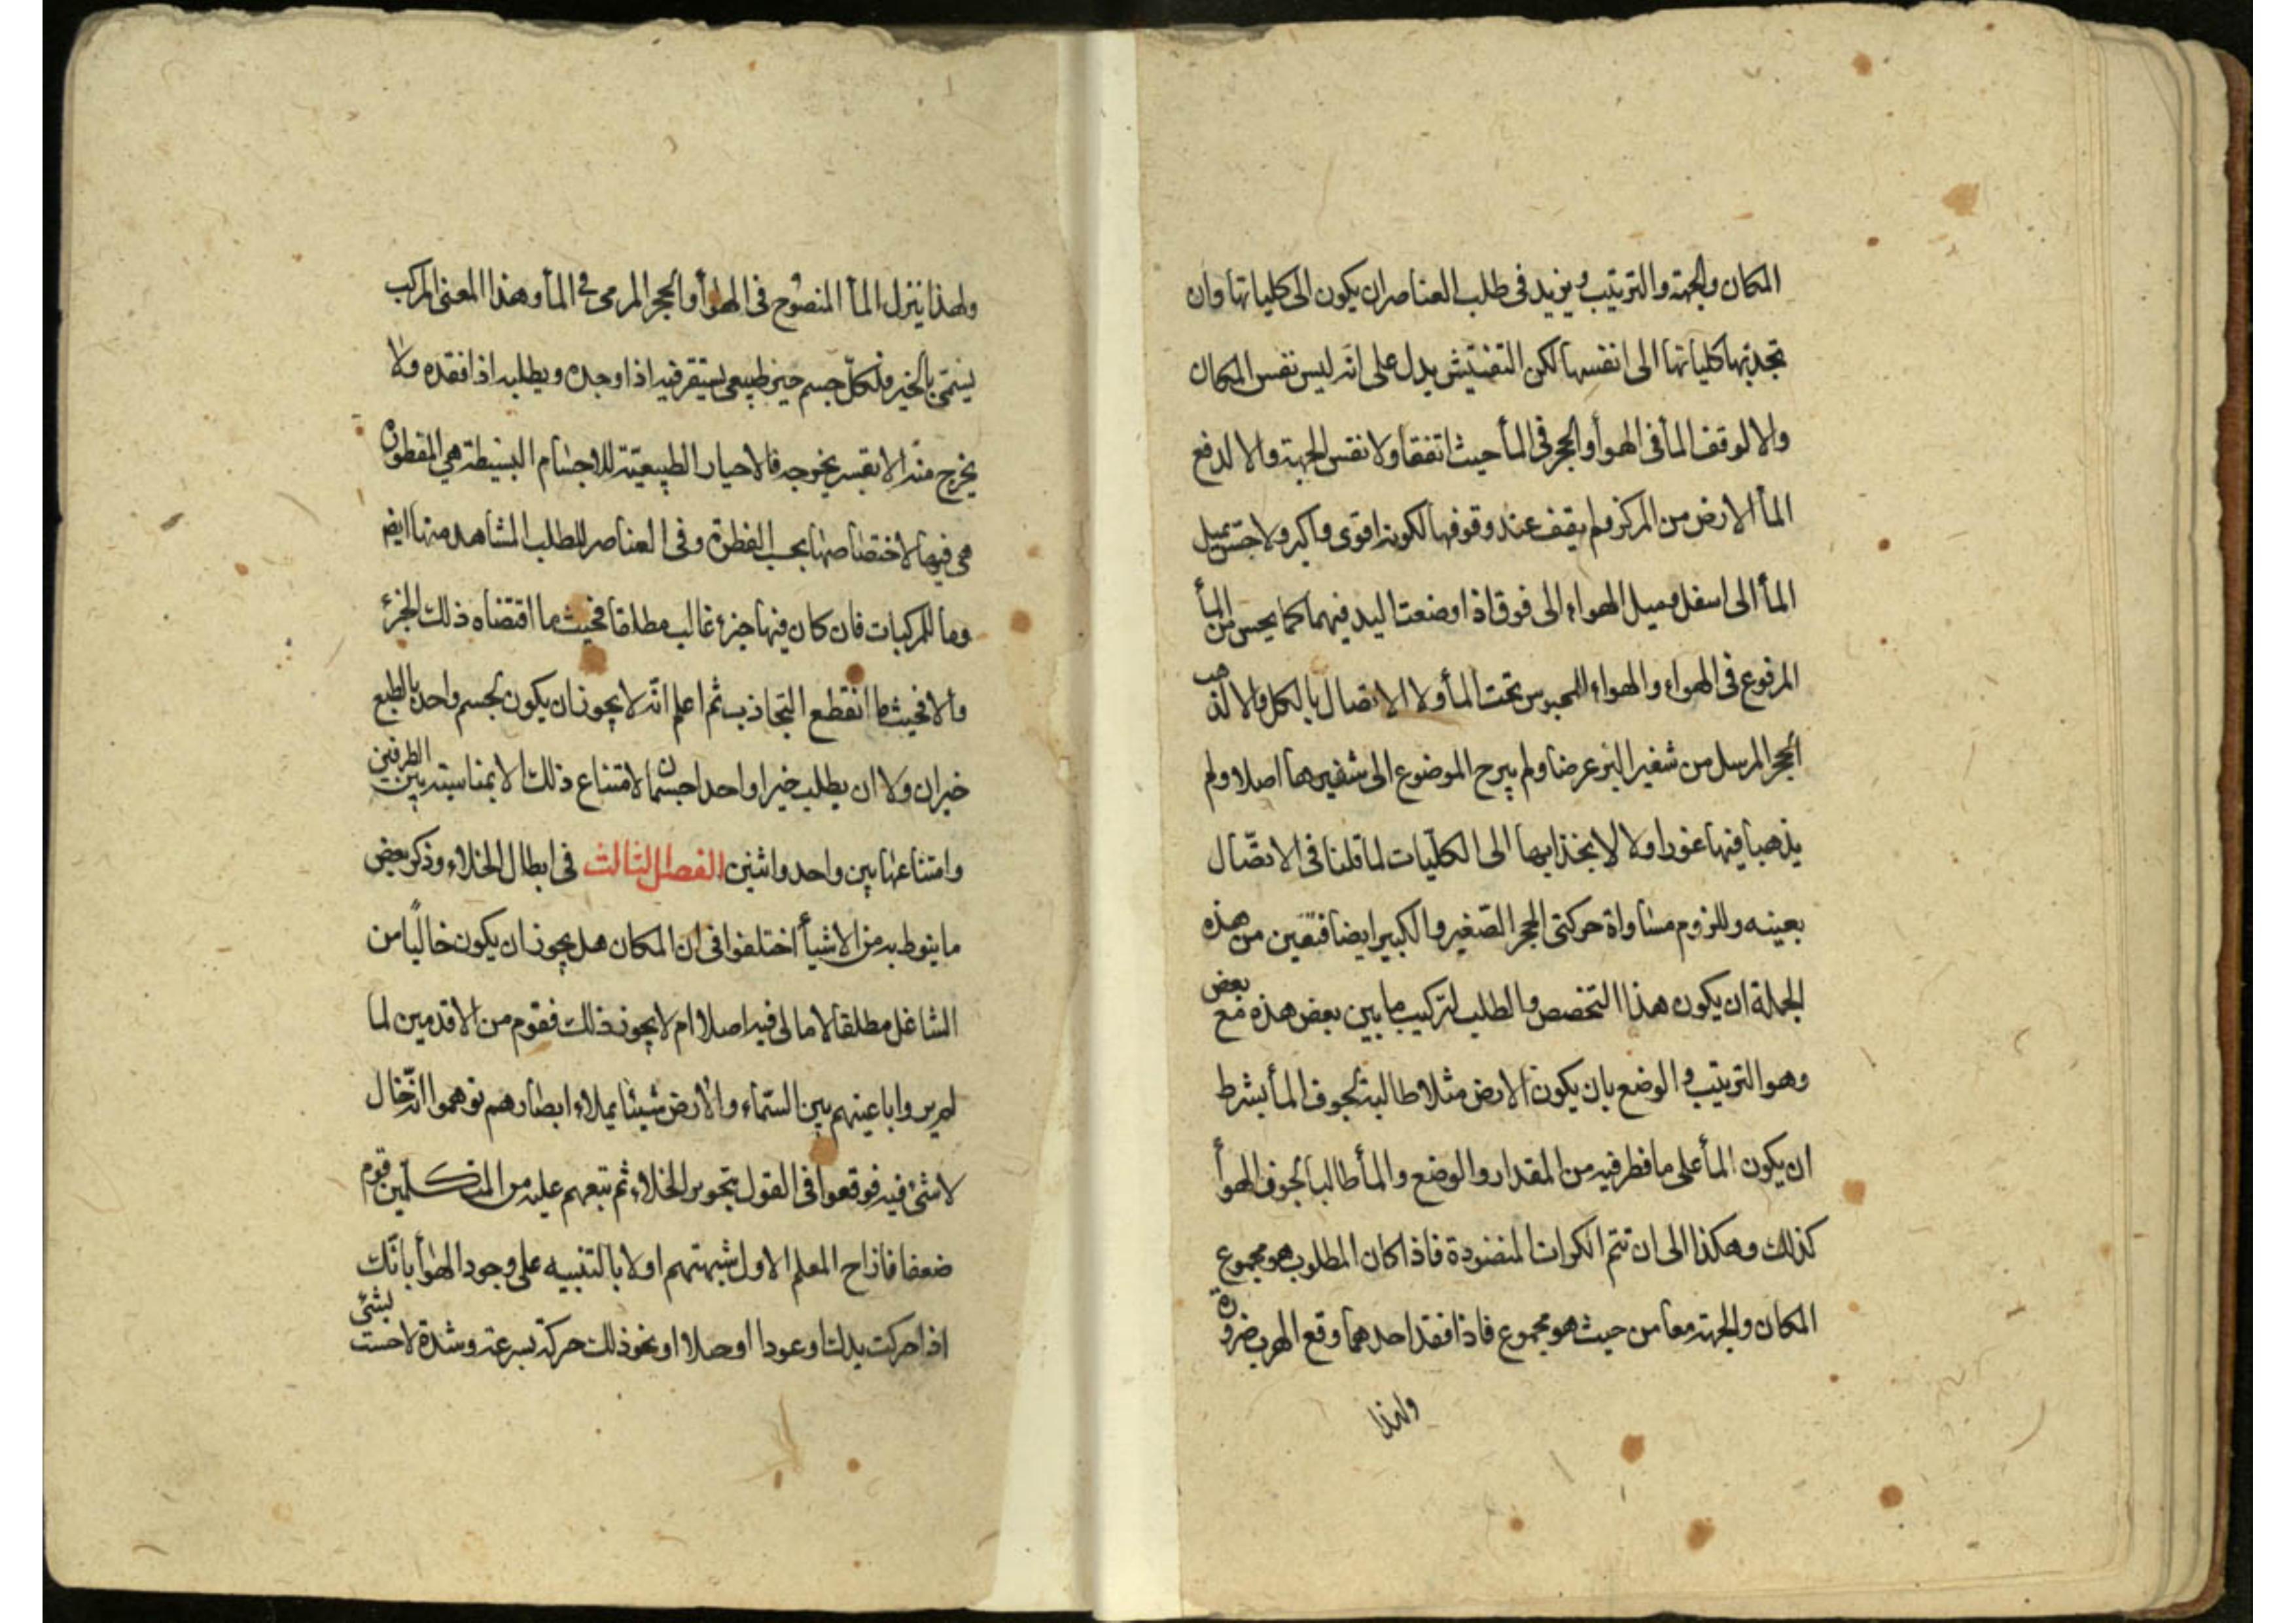 المكان والجهة والترتيب ويزيد فى طلب العناصر ان يكون الى كلياتها وان
تجذبها كلياتها الى انفسها لكن التفتيش يدل على انه ليس نفس المكان
والا لوقف المأ فى الهوأ والحجر فى المأ حيث اتفقا ولا نفس الجهة والا لدفع
المأ الارض من المركز ولم يقف عند وقوفها لكونه اقوى واكبر ولاحس بميل
المأ الى اسفل وميل الهواء الى فوق اذا وضعت اليد فيهما كما يحس من المأ
المرفوع فى الهواء والهواء المحبوس تحت المأ ولا الاتصال بالكل والا لذهب
الحجر المرسل من شفير البئر عرضا ولم يبرح الموضوع الى شفيرها اصلا ولم
يذهبا فيها غورا ولا لانجذابها الى الكليات لما قلنا فى الاتصّال
بعينه وللزوم مساواة حركتى الحجر الصغير والكبير ايضا فتعين من هذه
الجملة ان يكون هذا التخصص والطلب لتركيب ما بين بعض هذه مع بعض
وهو الترتيب والوضع بان يكون الارض مثلا طالبة لجوف المأ بشرط
ان يكون المأ على ما فطر فيه من المقدار والوضع والمأ طالبا لجوف الهوأ
كذلك وهكذا الى ان تتم الكرات المنضودة فاذا كان المطلوب هو مجموع
المكان والجهة معا من حيث هو مجموع فاذا فقد احدهما وقع الهرب ضرورة
ولهذا
ولهذا ينزل المأ المنضوح فى الهوأ والحجر المرمى فى المأ وهذا المعنى المركب
يسمّى بالخير فلكلّ جسم حيز طبيعى يستقر فيه اذا وجده ويطلبه اذا فقده ولا
يخرج منه الا بقسر يخرجه فالاحياز الطبيعيّة للاجسام البسيطة هى المفطورة
هى فيها لاختصاصها بحسب الفطرة وفى العناصر للطلب المشاهد منها ايضا
وما للمركبات فان كان فيها جزء غالب مطلقا فحيث ما اقتضاه ذلك الجزء
والا فحيث ما انقطع التجاذب ثم اعلم انّه لا يجوز ان يكون لجسم واحد بالطبع
خيران ولا ان يطلب خيرا واحدا جسمان لامتناع ذلك الا بمناسبة بين الطرفين
وامتناعها بين واحد واثنين الفصل الثالث فى ابطال الخلاء وذكر بعض
ما ينوط به من الاشيأ اختلفوا فى ان المكان هل يجوز ان يكون خاليًا من
الشاغل مطلقا لا مالى فيه اصلا ام لا يجوز ذلك فقوم من الاقدمين لما
لم يروا باعينهم بين السّماء والارض شيئا يملاء ابصارهم توهموا انّه خال
لا شئ فيه فوقعوا فى القول بتجويز الخلاء ثم تبعهم عليه من المتكلّمين قوم
ضعفا فازاح المعلم الاول شبهتهم اولا بالتنبيه على وجود الهوأ بانّك
اذا حركت يدك او عودا او حبلا او نحو ذلك حركة بسرعة وشدة لاحست بشئ